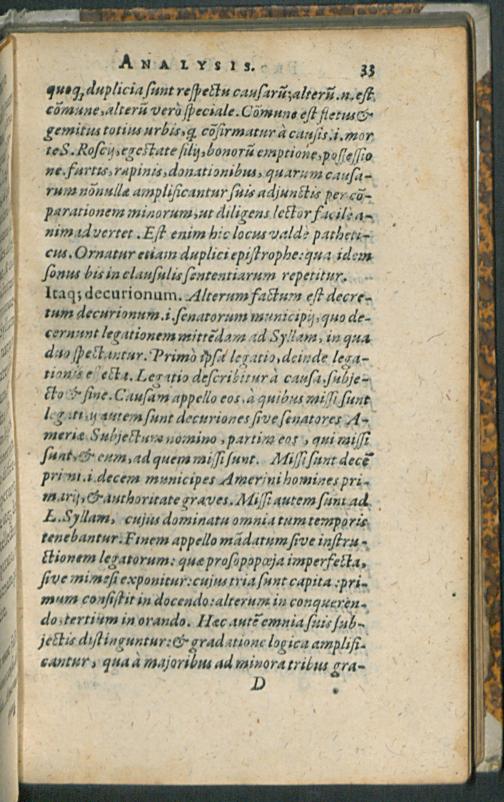 ANALYSIS. 33
quoq; duplicia sunt respectu causarũ; alterũ .n. est
cõmune, alterũ verò speciale. Cõmune est fletus &
gemitus totius urbis, q cõfirmatur à causis .i. mor
te S. Roscij, egestate filij, bonorũ emptione, possessio
ne. furtis, rapinis, donationibus, quarum causa-
rum nõnullæ amplificantur suis adjunctis per cõ-
parationem minorum, ut diligens lector facilè a-
nimadvertet. Est enim hic locus valdè patheti-
cus. Ornatur etiam duplici epistrophe: qua idem
sonus bis in clausulis sententiarum repetitur.
Itaq; decurionum. Alterum factum est decre-
tum decurionum .i. senatorum municipij, quo de-
cernunt legationem mittẽdam ad Syllam, in qua
duo spectantur. Primò ipsa legatio, deinde lega-
tionis effecta. Legatio describitur à causa, subje-
cto & fine. Causam appello eos, à quibus missi sunt
legati, ij autem sunt decuriones sive senatores A-
meriæ Subjectum nomino, partim eos, qui missi
sunt, & eum, ad quem missi sunt. Missi sunt decẽ
primi .i. decem municipes Amerini homines pri-
marij, & authoritate graves. Missi autem sunt ad
L. Syllam, cujus dominatu omnia tum temporis
tenebantur. Finem appello mãdatum sive instru-
ctionem legatorum: quæ prosopopœja imperfecta,
sive mimesi exponitur: cujus tria sunt capita: pri-
mum consistit in docendo: alterum in conqueren-
do, tertium in orando. Hæc autẽ omnia suis sub-
jectis distinguntur: & gradatione logica amplifi-
cantur, qua à majoribus ad minora tribus gra-
D